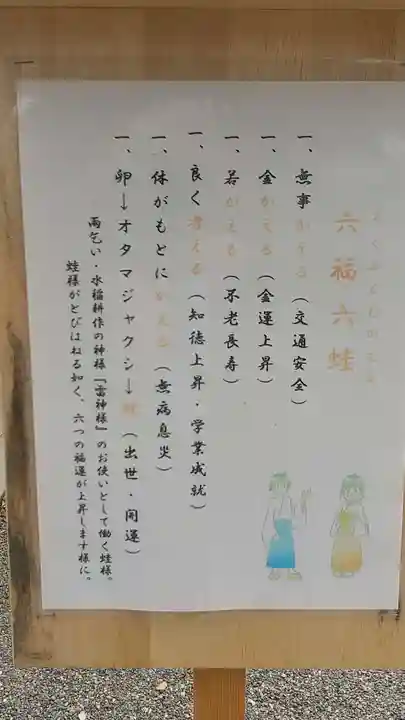 ろくふくむかえる
六福六蛙
一、無事かえる(交通安全)
一、金かえる(金運上昇)
一、若がえる(不老長寿)
一、良く考える(知徳上昇・学業成就)
一、体がもとにかえる(無病息災)
一、卵→オタマジャクシ→蛙(出世・開運)
雨乞い・水稲耕作の神様『雷神様』のお使いとして働く蛙様。
蛙様がとびはねる如く、六つの福運が上昇します様に。